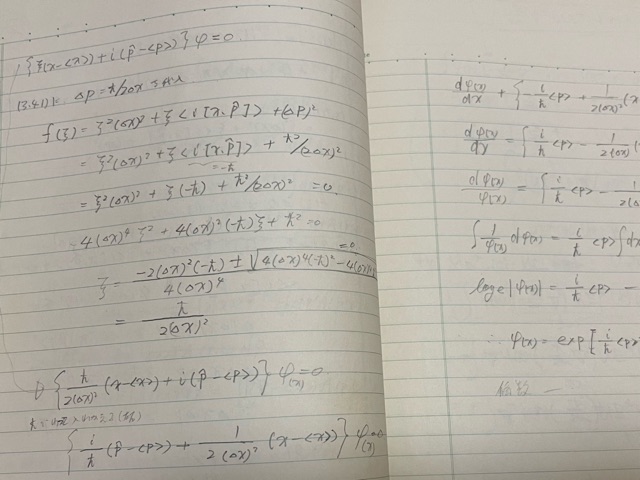 {ξ(x-<x>)+i(p̂-<p>)}φ=0.
(3.41)に Δp=ħ/2Δx を代入
f(ξ)= ξ²(Δx)²+ξ<i[x,p̂]>+(Δp)²
= ξ²(Δx)²+ξ<i[x,p̂]>+ħ²/(2Δx)²
=-ħ
= ξ²(Δx)²+ξ(-ħ)+ħ²/(2Δx)² =0.
4(Δx)⁴ξ²+4(Δx)²(-ħ)ξ+ħ²=0
=0
ξ= (-2(Δx)²(-ħ)±√(4(Δx)⁴(-ħ)²-4(Δx)⁴))/(4(Δx)⁴)
= ħ/(2(Δx)²)
{ħ/(2(Δx)²) (x-<x>)+i(p̂-<p>)}φ(x)=0
{i/ħ (p̂-<p>)+1/(2(Δx)²) (x-<x>)}φ(x)=0
dφ(x)/dx + {-i/ħ <p>+1/(2(Δx)²) (x
dφ(x)/dx = {i/ħ <p>-1/(2(Δx)²)
dφ(x)/φ(x) = {i/ħ <p>-1/(2(Δ
∫1/φ(x) dφ(x)= i/ħ <p>∫dx
log e|φ(x)|= i/ħ <p> -
∴ φ(x)=exp[i/ħ <p>